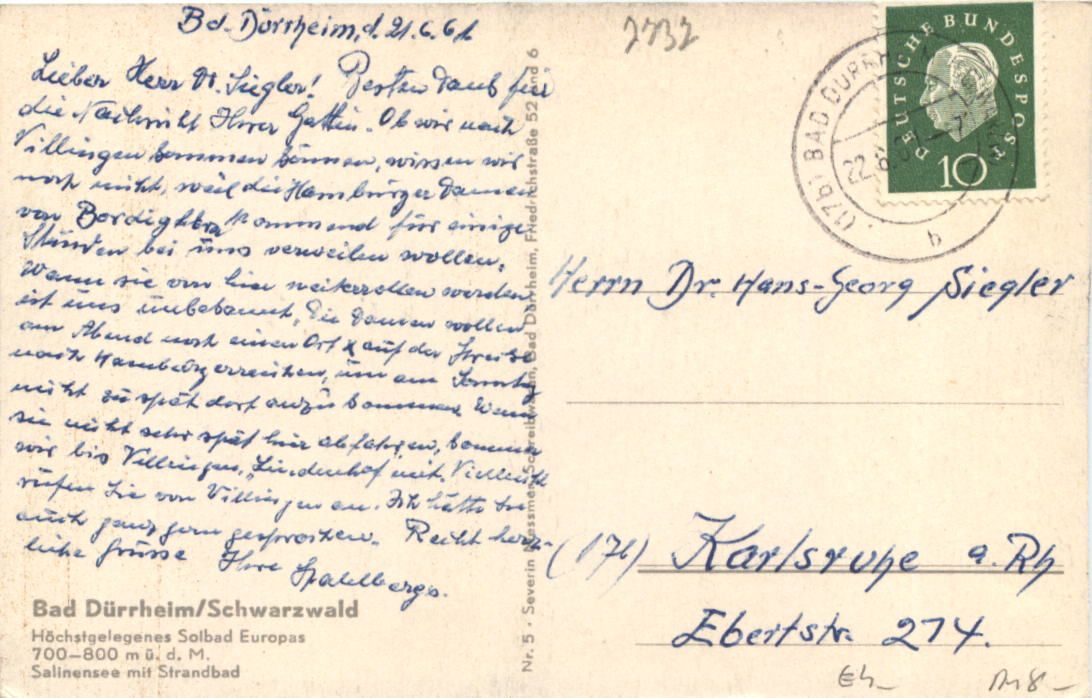 Bd. Dürrheim, d. 21.6.61
2732
Lieber Herr Dr. Siegler! Besten Dank für
die Nachricht Ihrer Gattin. Ob wir nach
Villingen kommen können, wissen wir
noch nicht, weil die Hamburger Damen
von Bordighera kommend für einige
Stunden bei uns verweilen wollen.
Wann sie von hier weiterzellen werden
ist uns unbekannt, die Damen wollen
am Abend noch einen Ort auf der Strecke
nach Hamburg erreichen, um am Sonntag
nicht zu spät dort anzukommen. Wenn
sie nicht sehr spät hier abfahren, kommen
wir bis Villingen, "Lindenhof" mit. Vielleicht
rufen Sie von Villingen an. Ich hätte Sie
auch ganz gern gesprochen. Recht herz-
liche Grüsse Ihre Stahlbergs.
Bad Dürrheim/Schwarzwald
Höchstgelegenes Solbad Europas
700–800 m ü. d. M.
Salinensee mit Strandbad
Nr. 5 · Severin Schreibwaren, Bad Dürrheim, Friedrichstraße 52 und 6
DEUTSCHE BUNDESPOST
10
(17b) BAD DÜRRH
22.6.61-7
b
Herrn Dr. Hans-Georg Siegler
(17b) Karlsruhe a. Rh
Ebertstr. 274.